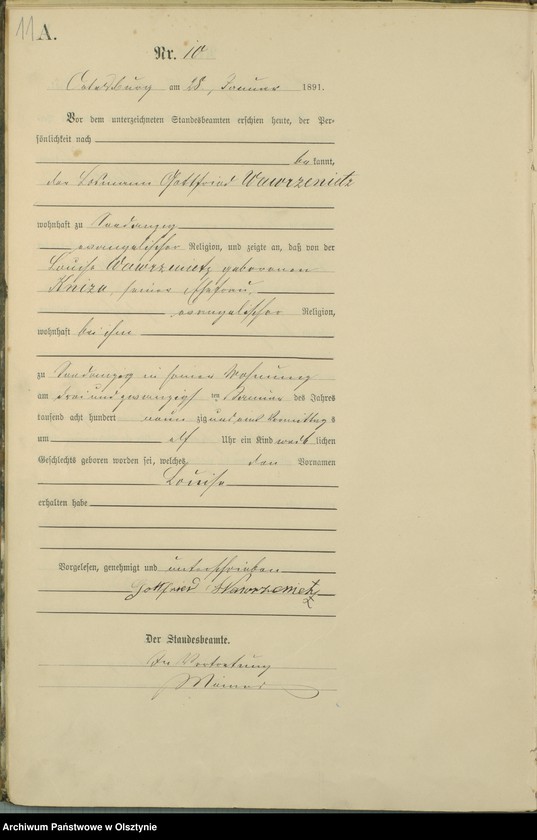 11
A.
Nr. 10
Ortelsburg am 28. Januar 1891.
Vor dem unterzeichneten Standesbeamten erschien heute, der Per-
sönlichkeit nach
bekannt,
der Losmann Gottfried Wawrzenietz
wohnhaft zu
evangelischer Religion, und zeigte an, daß von der
Louise Wawrzenietz geborenen
Kniza, seiner Ehefrau,
evangelischer Religion,
wohnhaft bei ihm
zu in seiner Wohnung
am dreiundzwanzigsten Januar des Jahres
tausend acht hundert neunzig und eins Vormittags
um elf Uhr ein Kind weiblichen
Geschlechts geboren worden sei, welches den Vornamen
Louise
erhalten habe
Vorgelesen, genehmigt und unterschrieben
Gottfried Wawrzenietz
Der Standesbeamte.
In Vertretung
Archiwum Państwowe w Olsztynie